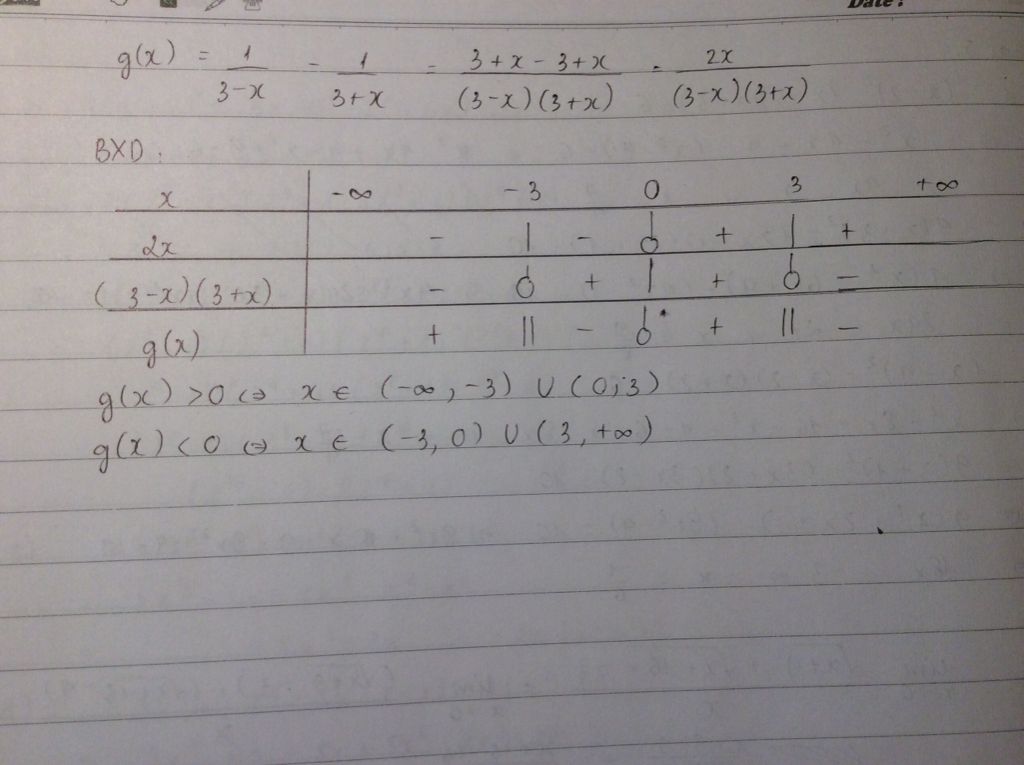 Date:
g(x) = 1/(3-x) - 1/(3+x) = (3+x-3+x)/((3-x)(3+x)) = 2x/((3-x)(3+x))
BXD:
x | -∞ -3 0 3 +∞
2x | - | - 0 + | +
(3-x)(3+x) | - 0 + | + 0 -
g(x) | + || - 0 + || -
g(x) > 0 ⇔ x ∈ (-∞, -3) ∪ (0; 3)
g(x) < 0 ⇔ x ∈ (-3, 0) ∪ (3, +∞)